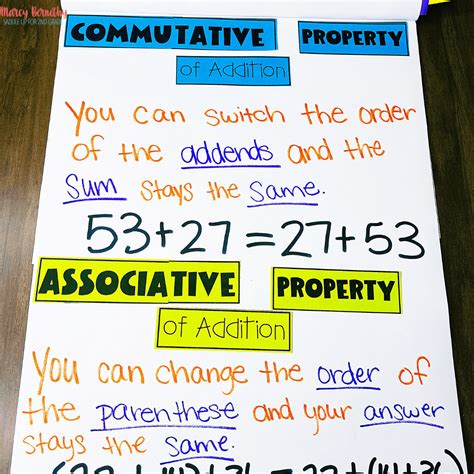 Marcy Bernethy
SADDLE UP FOR 2ND GRADE
COMMUTATIVE PROPERTY
of Addition
You can switch the order
of the addends and the
Sum stays the Same.
53+27=27+53
ASSOCIATIVE PROPERTY
of Addition
You can change the order of
the parenthese and your answer
stays the Same.